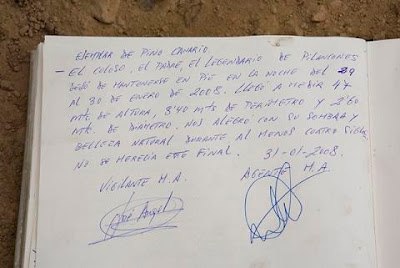 EJEMPLAR DE PINO CANARIO.
- EL COLOSO, EL PADRE, EL LEGENDARIO DE PILANCONES
DEJÓ DE MANTENERSE EN PIE EN LA NOCHE DEL 29
AL 30 DE ENERO DE 2008. LLEGÓ A MEDIR 47
mts DE ALTURA, 8'40 mts DE PERÍMETRO Y 2'60
mts. DE DIAMETRO. NOS ALEGRÓ CON SU SOMBRA Y
BELLEZA NATURAL DURANTE AL MENOS CUATRO SIGLOS
NO SE MERECIA ESTE FINAL. 31-01-2008.
VIGILANTE M.A. AGENTE M.A.
José Angel